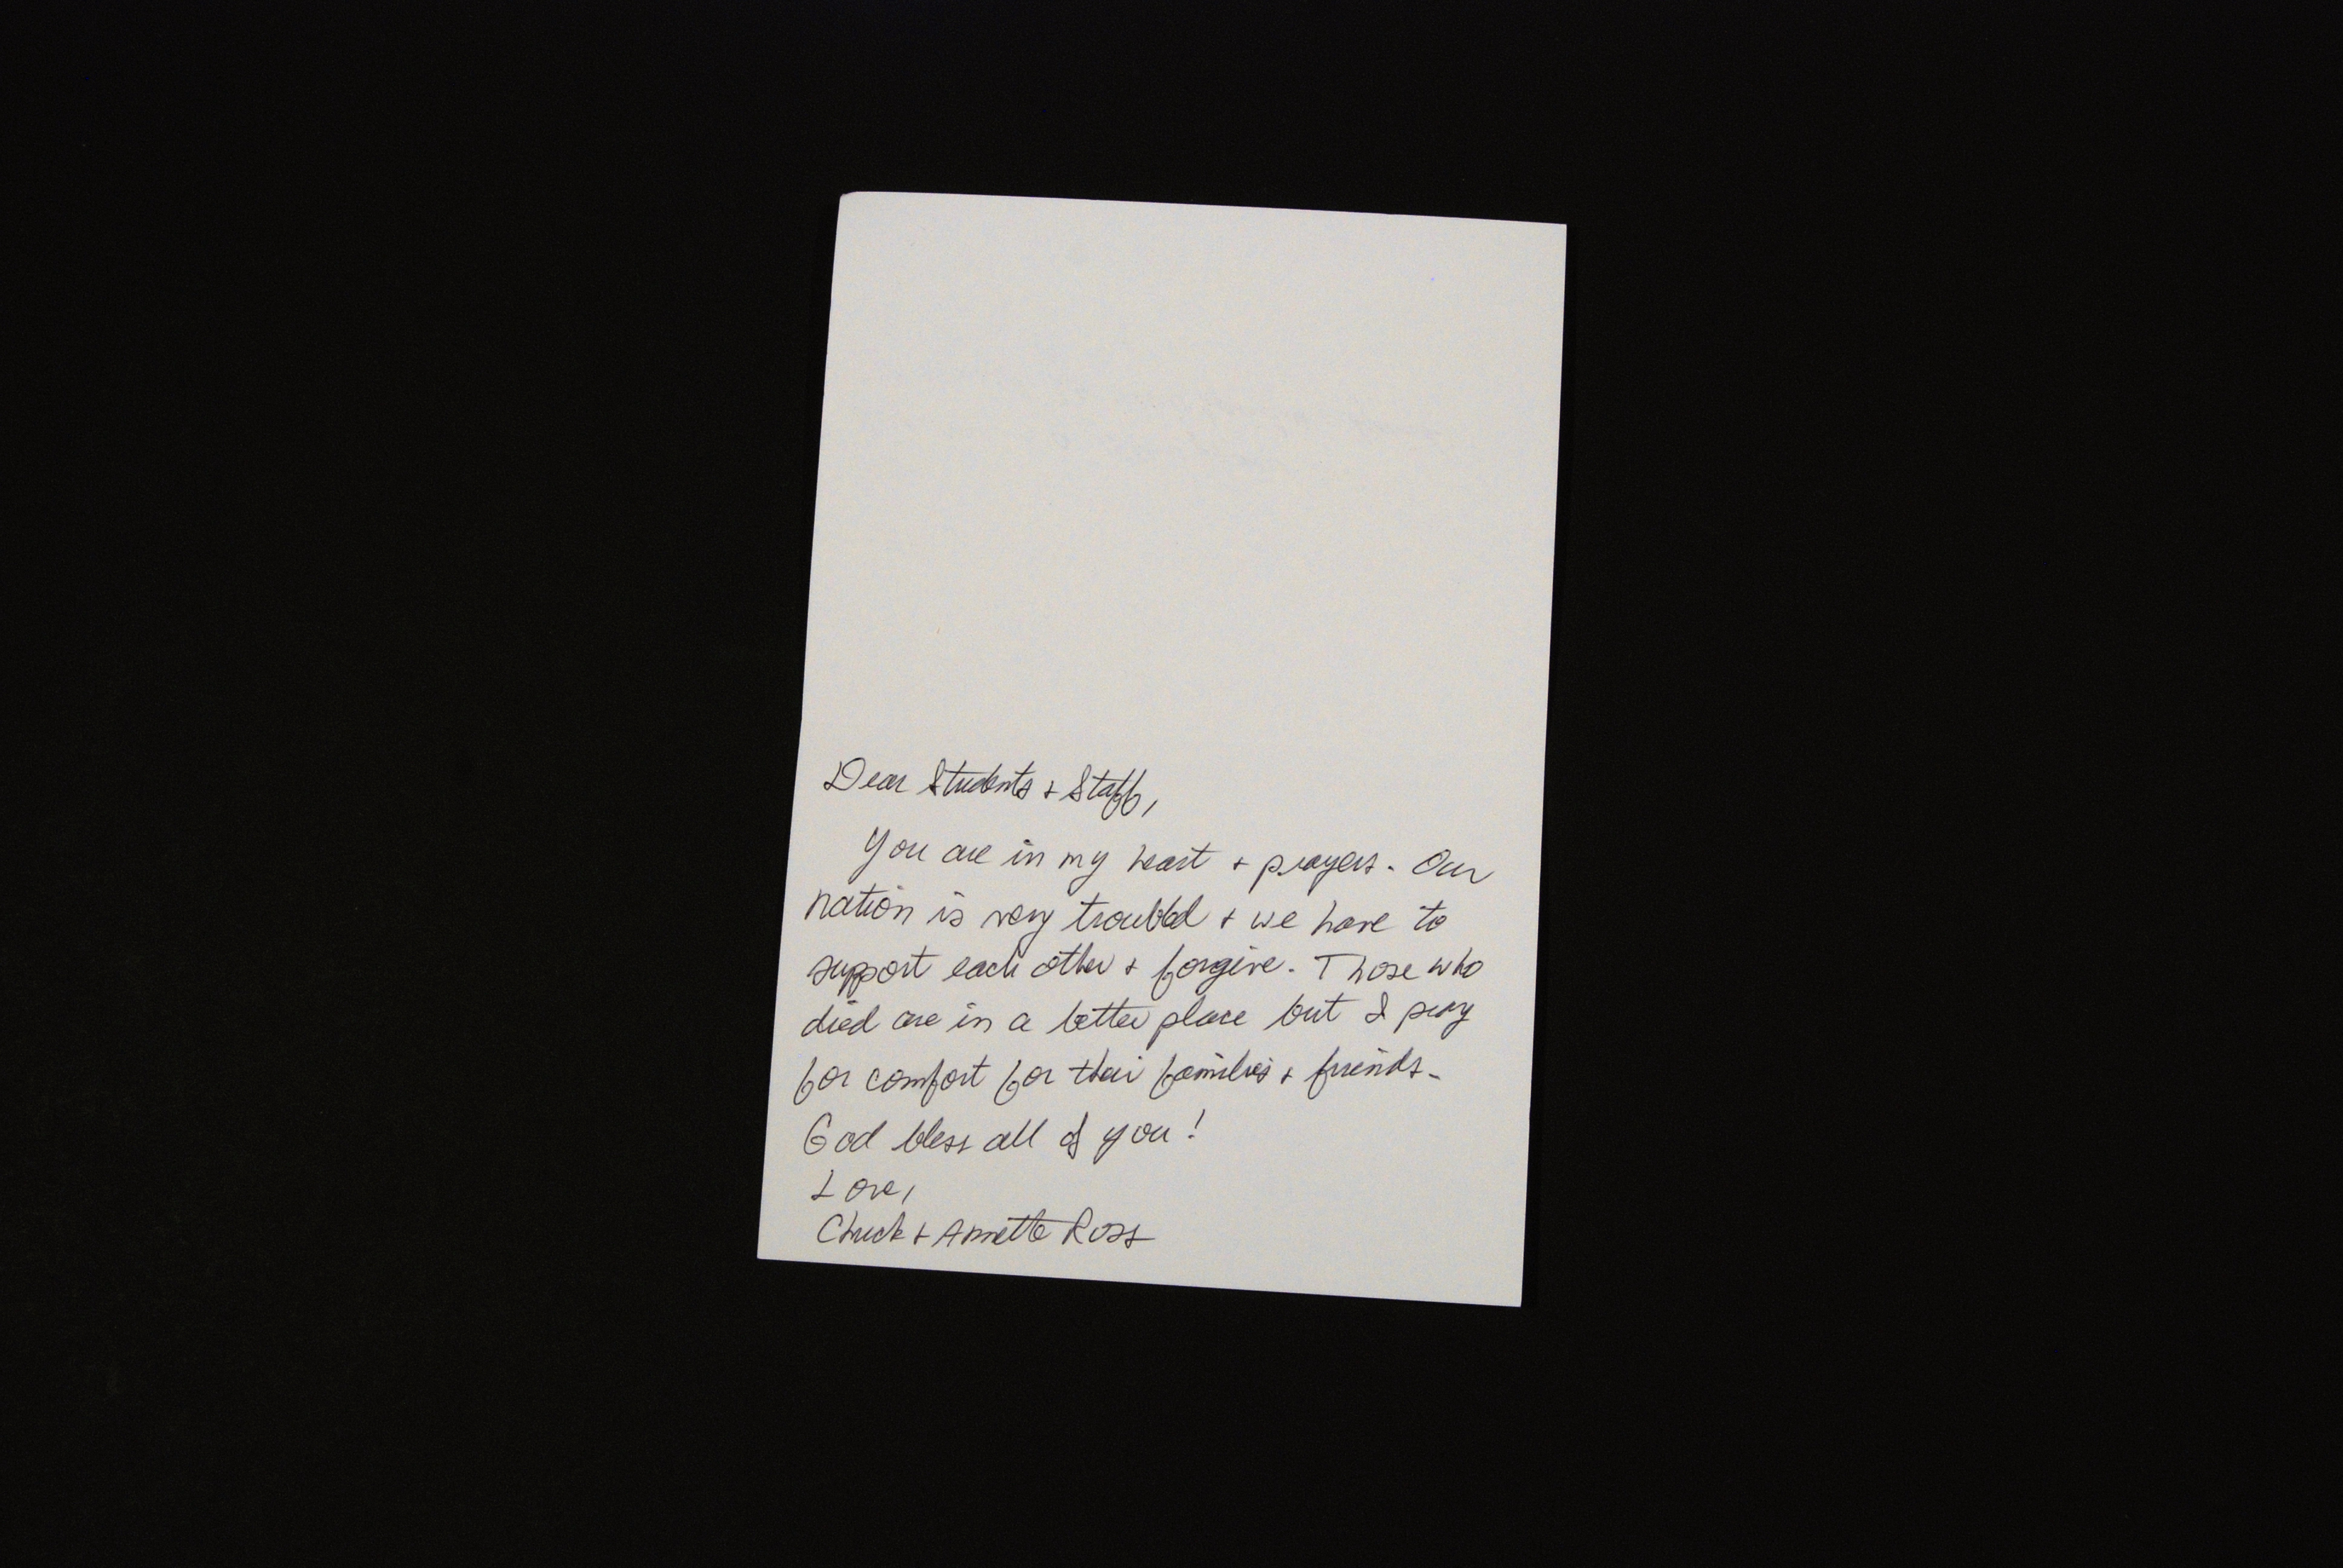 Dear Students + Staff,
You are in my heart + prayers. Our
nation is very troubled + we have to
support each other + forgive. Those who
died are in a better place but I pray
for comfort for their families + friends.
God bless all of you!
Love,
Chuck + Annette Ross